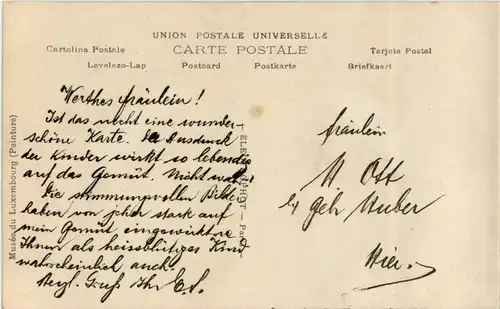 UNION POSTALE UNIVERSELLE
CARTE POSTALE
Cartolina Postale
Tarjeta Postal
Levelezo-Lap
Postcard
Postkarte
Briefkaart
Werthes fräulein!
Ist das nicht eine wunder-
schöne Karte. Der Ausdruck
der Kinder wirkt so lebendig
auf das Gemüt. Nicht wahr!
Die stimmungsvollen Bilder
haben von jeher stark auf
mein Gemüt eingewirkt
Ihnen als heissblütiges Kind
wahrscheinlich auch.
Herzl. Gruß Ihr E. S.
fräulein
Ott
geb. Huber
Hier.
Musée du Luxembourg (Peinture)